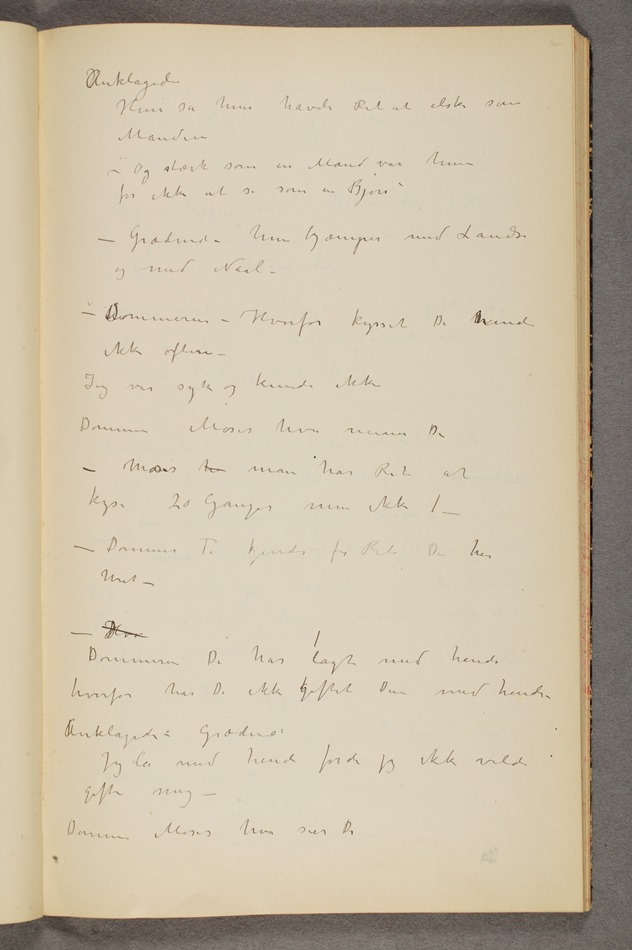 Anklagede
Hun sa hun havde Ret at elske som
Manden
– Og stærk som en Mand var hun
for ikke at si som en Bjørn
– Grædende – hun kjæmper med Landse
og med Naal –
– Dommeren – Hvorfor kysset De hende
ikke oftere –
Jeg var syk og kunde ikke
Dommeren Moses hva mener De
– Moses man har Ret at
kysse 20 Ganger men ikke 1 –
– Dommer Ti kjendes for Ret De har
Uret –
– Hvo
Dommeren De har lagt med hende
hvorfor har De ikke giftet Dem med hende –
Anklagede – Grædende
Jeg la med hende fordi jeg ikke vilde
gifte mig –
Dommeren Moses hva sier De